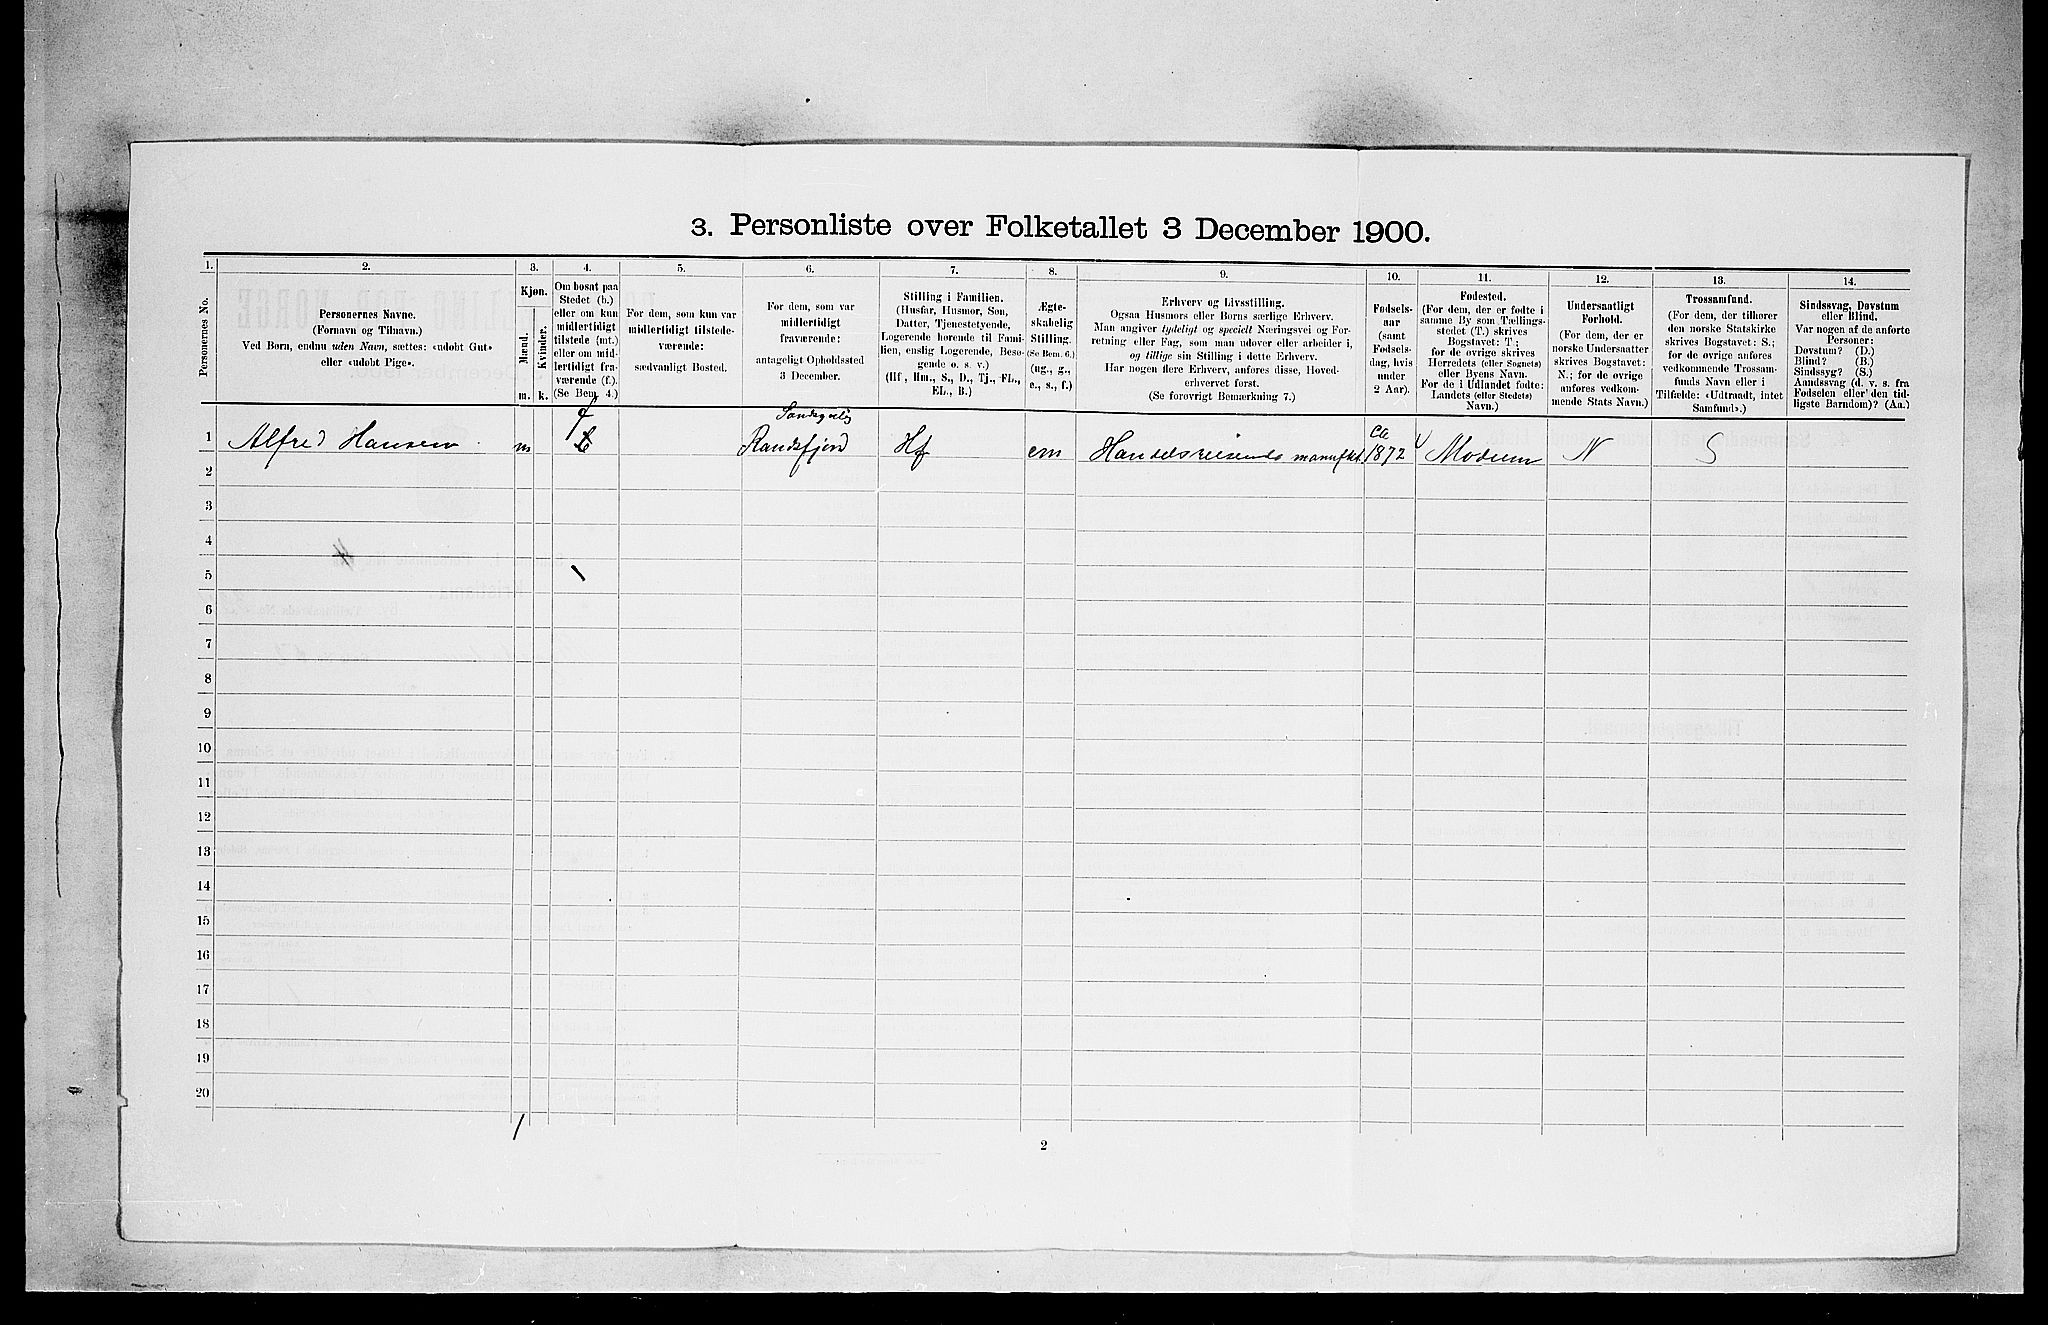 3. Personliste over Folketallet 3 December 1900.
1.
Personernes No.
2.
Personernes Navne.
(Fornavn og Tilnavn.)
Ved Børn, endnu uden Navn, sættes: «udøbt Gut»
eller «udøbt Pige».
3.
Kjøn.
Mænd.
Kvinder.
m.
k.
4.
Om bosat paa
Stedet (b.)
eller om kun
midlertidigt
tilstede (mt.)
eller om mid-
lertidigt fra-
værende (f.).
(Se Bem. 4.)
5.
For dem, som kun var
midlertidigt tilstede-
værende:
sædvanligt Bosted.
6.
For dem, som var
midlertidigt
fraværende:
antageligt Opholdssted
3 December.
7.
Stilling i Familien.
(Husfar, Husmor, Søn,
Datter, Tjenestetyende,
Logerende hørende til Fami-
lien, enslig Logerende, Besø-
gende o. s. v.)
(Hf., Hm., S., D., Tj., FL.,
EL., B.)
8.
Ægte-
skabelig
Stilling.
(Se Bem. 6.)
(ug., g.,
e., s., f.)
9.
Erhverv og Livsstilling.
Ogsaa Husmors eller Børns særlige Erhverv.
Man angiver tydeligt og specielt Næringsvei og For-
retning eller Fag, som man udøver eller arbeider i,
og tillige sin Stilling i dette Erhverv.
Har nogen flere Erhverv, anføres disse, Hoved-
erhvervet først.
(Se forøvrigt Bemærkning 7.)
10.
Fødsels-
aar
(samt
Fødsels-
dag, hvis
under
2 Aar).
11.
Fødested.
(For dem, der er fødte i
samme By som Tællings-
stedet (T.) skrives
Bogstavet: T;
for de øvrige skrives
Herredets (eller Sognets)
eller Byens Navn.
For de i Udlandet fødte:
Landets (eller Stedets)
Navn.)
12.
Undersaatligt
Forhold.
(For dem, der er
norske Undersaatter
skrives Bogstavet:
N.; for de øvrige
anføres vedkom-
mende Stats Navn.)
13.
Trossamfund.
(For dem, der tilhører
den norske Statskirke
skrives Bogstavet: S.;
for de øvrige anføres
vedkommende Trossam-
funds Navn eller i
Tilfælde: «Udtraadt, intet
Samfund».)
14.
Sindssvag, Døvstum
eller Blind.
Var nogen af de anførte
Personer:
Døvstum? (D.)
Blind? (B.)
Sindssyg? (S.)
Aandssvag (d. v. s. fra
Fødselen eller den tid-
ligste Barndom)? (Aa.)
1 Alfred Hansen m f Randsfjord Hf em Handelsreisende 1872 Modum N S
ca
2
3
4
5
6
7
8
9
10
11
12
13
14
15
16
17
18
19
20
1
2